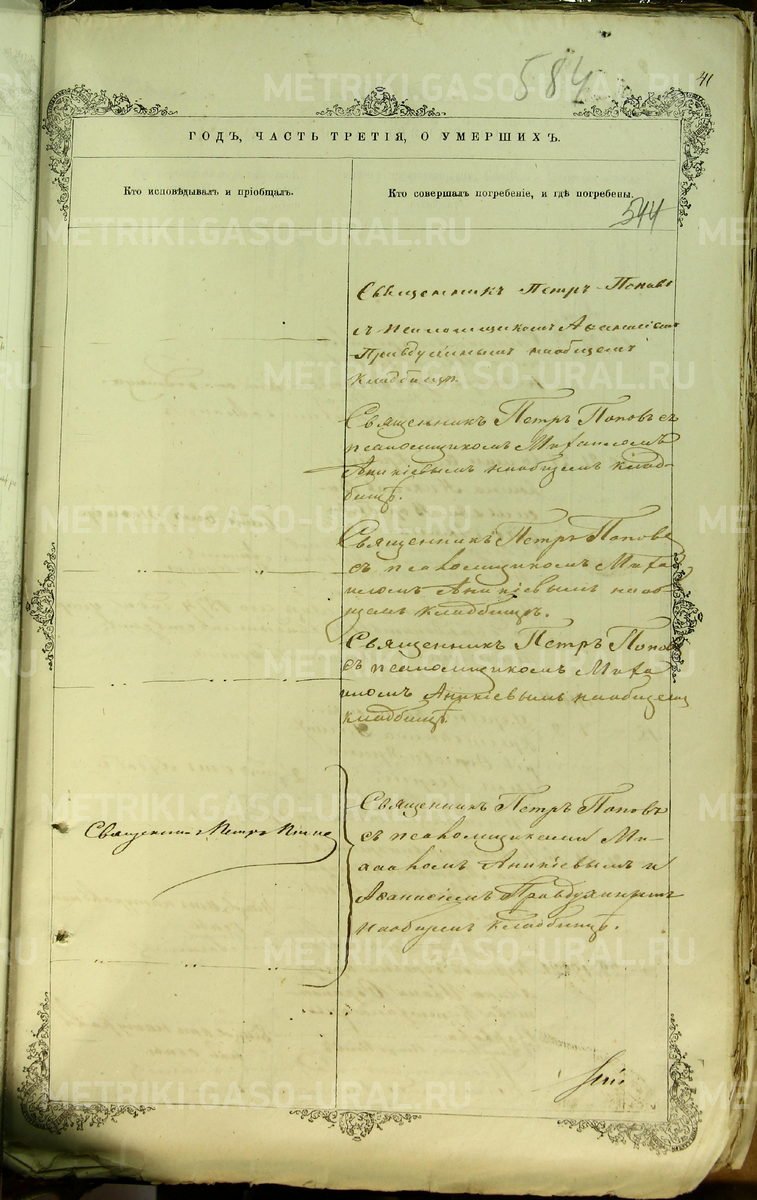 584
41
ГОДЪ, ЧАСТЬ ТРЕТІЯ, О УМЕРШИХЪ.
Кто исповѣдывалъ и пріобщалъ.
Кто совершалъ погребеніе, и гдѣ погребены.
544
METRIKI.GASO-URAL.RU
Священникъ Петръ Поповъ
съ псаломщикомъ Аѳанасіемъ
Правдухинымъ на общемъ
кладбищѣ.
Священникъ Петръ Поповъ съ
псаломщикомъ Михаиломъ
Аникіевымъ на общемъ клад-
бищѣ.
Священникъ Петръ Поповъ
съ псаломщикомъ Миха
иломъ Аникіевымъ на об
щемъ кладбищѣ.
Священникъ Петръ Поповъ
съ псаломщикомъ Миха
иломъ Аникіевымъ на общемъ
кладбищѣ
Священникъ Петръ Поповъ
Священникъ Петръ Поповъ
съ псаломщиками Ми-
хаиломъ Аникіевымъ и
Аѳанасіемъ Правдухинымъ
на общемъ кладбищѣ.